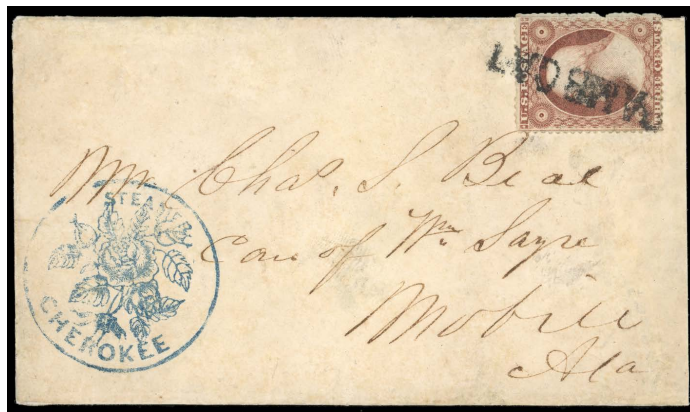 U.S. POSTAGE
THREE CENTS
Mr. Chas. S. Beal
Care of Wm Sayre
Mobile
Ala
STEAMER
CHEROKEE